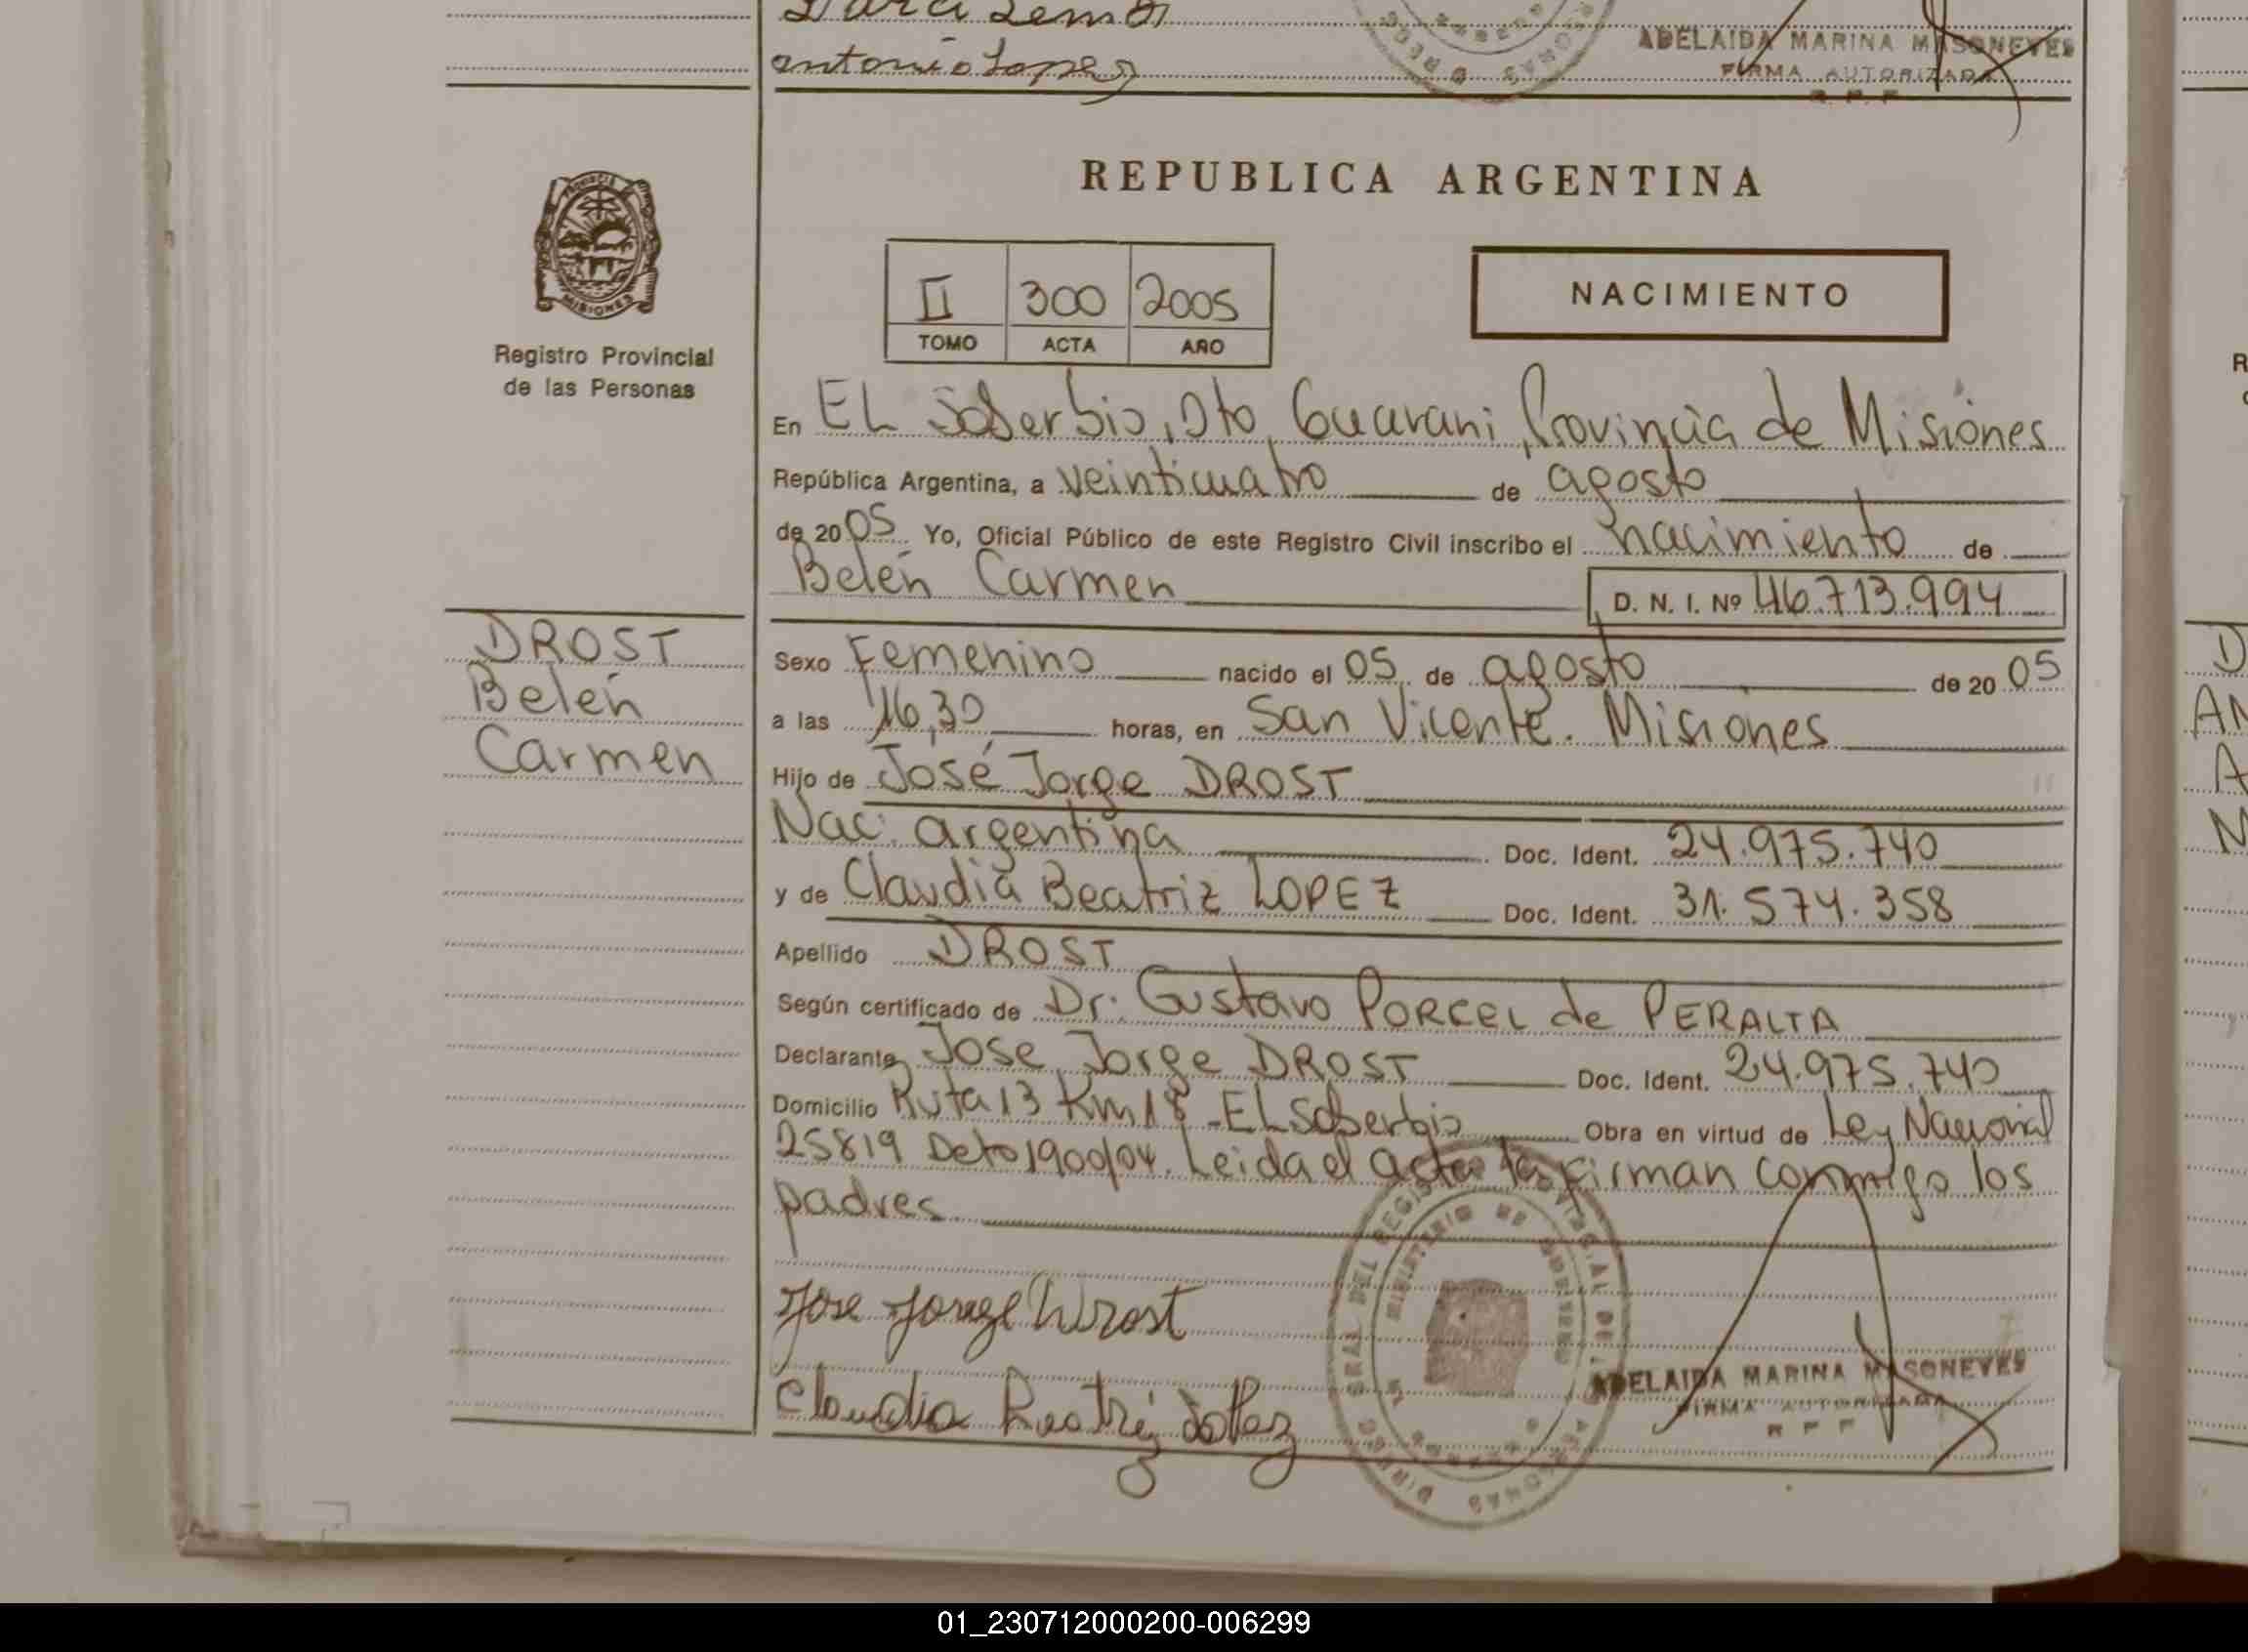 antonio Lopez
ADELAIDA MARINA MASONEVES
FIRMA AUTORIZADA
R. P. P.
REPUBLICA ARGENTINA
PROVINCIA
MISIONES
Registro Provincial
de las Personas
II 300 2005
TOMO ACTA AÑO
NACIMIENTO
En EL Soberbio, Dto, Guarani, Provincia de Misiones
República Argentina, a veinticuatro de agosto
de 2005 Yo, Oficial Público de este Registro Civil inscribo el nacimiento de
Belén Carmen D. N. I. Nº 46.713.994
DROST
Belén
Carmen
Sexo Femenino nacido el 05 de agosto de 2005
a las 16,30 horas, en San Vicente. Misiones
Hijo de José Jorge DROST
Nac. argentina Doc. Ident. 24.975.740
y de Claudia Beatriz LOPEZ Doc. Ident. 31.574.358
Apellido DROST
Según certificado de Dr. Gustavo PORCEL de PERALTA
Declarante Jose Jorge DROST Doc. Ident. 24.975.740
Domicilio Ruta 13 Km 18 - EL Soberbio Obra en virtud de Ley Nacional
25819 Dcto 1900/04. Leida el acta la firman conmigo los
padres
Jose Jorge Drost
Claudia Beatriz Lopez
ADELAIDA MARINA MASONEVES
FIRMA AUTORIZADA
R P P
01_230712000200-006299